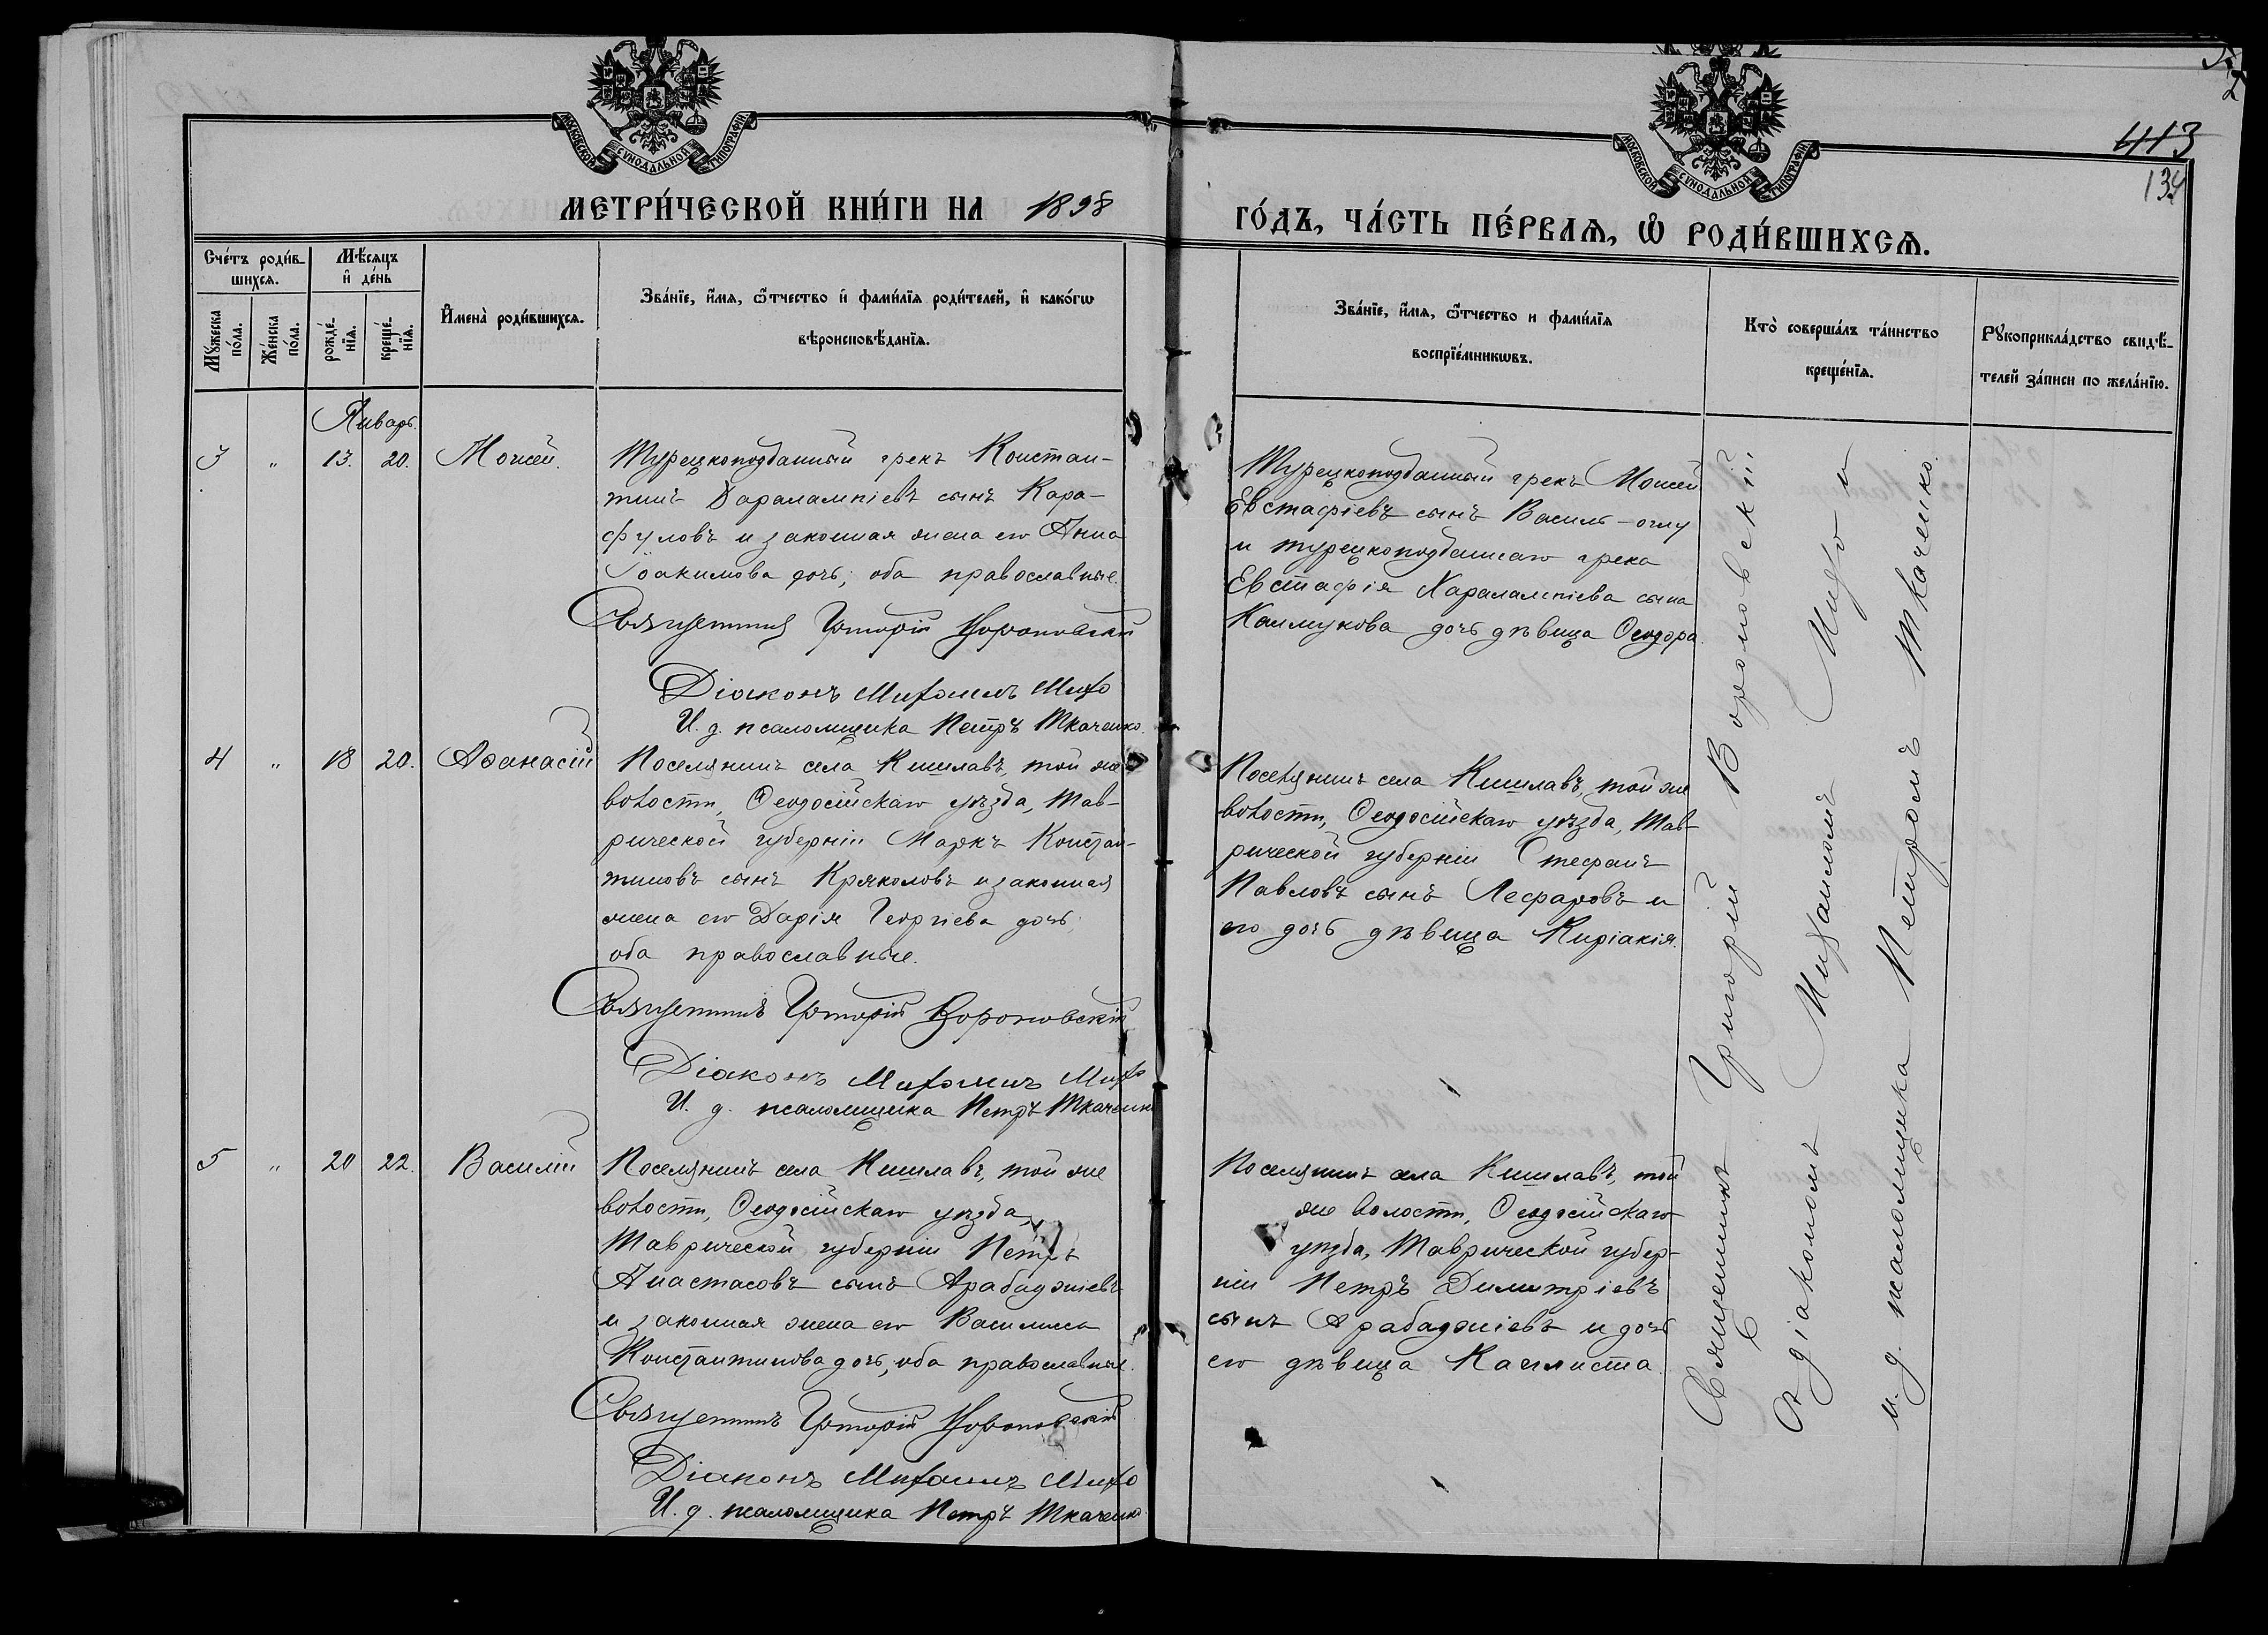 5.
2
413
134
МОСКОВСКОЙ СѴНОДАЛЬНОЙ ТИПОГРАФІИ
МОСКОВСКОЙ СѴНОДАЛЬНОЙ ТИПОГРАФІИ
МЕТРИ́ЧЕСКОЙ КНИ́ГИ НА 1898
ГО́ДЪ, ЧА́СТЬ ПЕ́РВАѦ, Ѡ РОДИ́ВШИХСѦ.
Сче́тъ роди́в-
шихсѧ.
Мꙋ́жеска по́ла.
Же́нска по́ла.
Мѣ́сѧцъ
и де́нь
рожде́-
нїѧ.
креще́-
нїѧ.
И҆мена̀ роди́вшихсѧ.
Зва́нїе, и҆́мѧ, ѻ҆́тчество и҆ фами́лїѧ роди́телей, и҆ како́гѡ
вѣроисповѣ́данїѧ.
Зва́нїе, и҆́мѧ, ѻ҆́тчество и фами́лїѧ
воспрїе́мникѡвъ.
Кто̀ соверша́лъ та́инство
креще́нїѧ.
Рꙋкоприкла́дство свидѣ́-
телей за́писи по жела́нїю.
Январь.
3 " 13. 20. Моисей.
Турецкоподданный грекъ Констан-
тинъ Харалампіевъ сынъ Кара-
фуловъ и законная жена его Анна
Іоакимова дочь; оба православные.
Священникъ Григорій Вороновскій
Діаконъ Михаилъ Михо
И. д. псаломщика Петръ Ткаченко.
Турецкоподданный грекъ Моисей
Евстафіевъ сынъ Василь-оглу
и турецкоподданнаго грека
Евстафія Харалампіева сына
Калмукова дочь дѣвица Ѳеодора.
4 " 18 20. Аѳанасій
Поселянинъ села Кишлавъ, той же
волости, Ѳеодосійскаго уѣзда, Тав-
рической губерніи Маркъ Констан-
тиновъ сынъ Кряколовъ и законная
жена его Дарія Георгіева дочь;
оба православные.
Священникъ Григорій Вороновскій
Діаконъ Михаилъ Михо
И. д. псаломщика Петръ Ткаченко
Поселянинъ села Кишлавъ, той же
волости, Ѳеодосійскаго уѣзда, Тав-
рической губерніи Стефанъ
Павловъ сынъ Лефаровъ и
его дочь дѣвица Киріакія.
5 " 20 22. Василій
Поселянинъ села Кишлавъ, той же
волости, Ѳеодосійскаго уѣзда,
Таврической губерніи Петръ
Анастасовъ сынъ Арабаджіевъ
и законная жена его Василиса
Константинова дочь, оба православные.
Священникъ Григорій Вороновскій
Діаконъ Михаилъ Михо
И. д. псаломщика Петръ Ткаченко.
Поселянинъ села Кишлавъ, той
же волости, Ѳеодосійскаго
уѣзда, Таврической губер-
ніи Петръ Димитріевъ
сынъ Арабаджіевъ и дочь
его дѣвица Каллиста.
Священникъ Григорій Вороновскій
съ діакономъ Михаиломъ Михо и
и. д. псаломщика Петромъ Ткаченко.